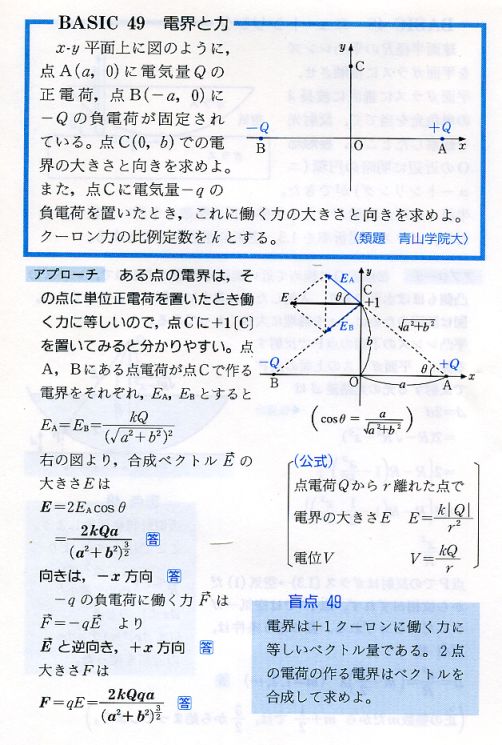 BASIC 49 電界と力
x-y 平面上に図のように,
点A(a, 0)に電気量Qの
正電荷, 点B(−a, 0)に
−Qの負電荷が固定され
ている。点C(0, b)での電
界の大きさと向きを求めよ。
また, 点Cに電気量−qの
負電荷を置いたとき, これに働く力の大きさと向きを求めよ。
クーロン力の比例定数をkとする。
〈類題 青山学院大〉
y
C
−Q
+Q
B
O
A
x
アプローチ ある点の電界は, そ
の点に単位正電荷を置いたとき働
く力に等しいので, 点Cに+1〔C〕
を置いてみると分かりやすい。点
A, Bにある点電荷が点Cで作る
電界をそれぞれ, EA, EBとすると
EA=EB=kQ/(√a²+b²)²
右の図より, 合成ベクトルE⃗の
大きさEは
E=2EAcosθ
=2kQa/(a²+b²)^3/2 答
向きは, −x方向 答
−qの負電荷に働く力F⃗は
F⃗=−qE⃗ より
E⃗と逆向き, +x方向 答
大きさFは
F=qE=2kQqa/(a²+b²)^3/2 答
y
EA
θ
C
+1
E
EB
√a²+b²
b
−Q
+Q
θ
B
O
a
A
x
(cosθ=a/√a²+b²)
(公式)
点電荷Qからr離れた点で
電界の大きさE E=k|Q|/r²
電位V V=kQ/r
盲点 49
電界は+1クーロンに働く力に
等しいベクトル量である。2点
の電荷の作る電界はベクトルを
合成して求めよ。